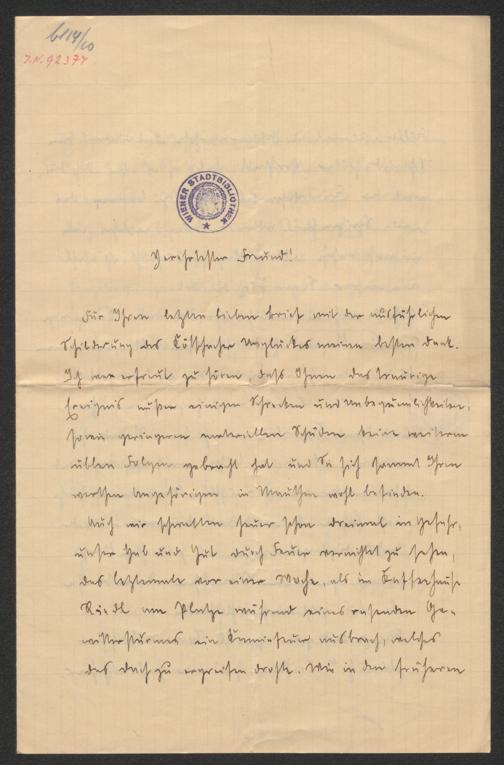 b114/10
I.N. 92374
WIENER STADTBIBLIOTHEK
Verehrtester Freund!
Für Ihren letzten lieben Brief mit der ausführlichen
Schilderung des Kötschacher Unglückes meinen besten Dank.
Ich war erfreut zu hören, dass Ihnen das traurige
Ereignis außer einigen Schrecken und Unbequemlichkeiten,
sowie geringeren materiellen Schäden keine weiteren
üblen Folgen gebracht hat und Sie sich sammt Ihren
werthen Angehörigen in Mauthen wohl befinden.
Auch wir schwebten heuer schon dreimal in Gefahr,
unser Hab und Gut durch Feuer vernichtet zu sehen,
das letztemal vor einer Woche, als im Kaffeehause
Riedl am Platze während eines rasenden Ge-
wittersturmes ein Kaminfeuer ausbrach, welches
das Dach zu ergreifen drohte. Wie in den früheren